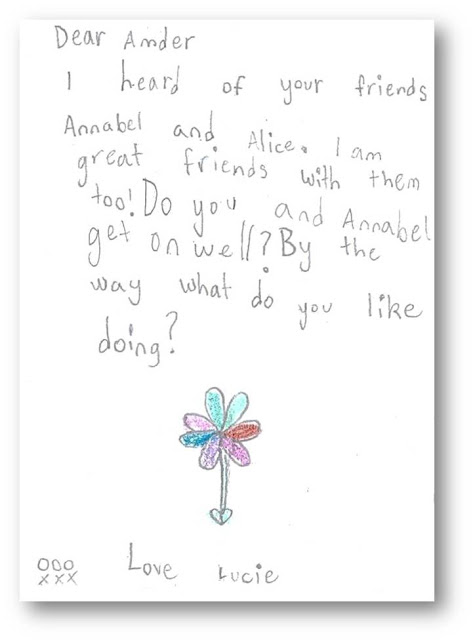 Dear Ander
I heard of your friends
Annabel and Alice. I am
great friends with them
too! Do you and Annabel
get on well? By the
way what do you like
doing?
OOO
XXX
Love Lucie